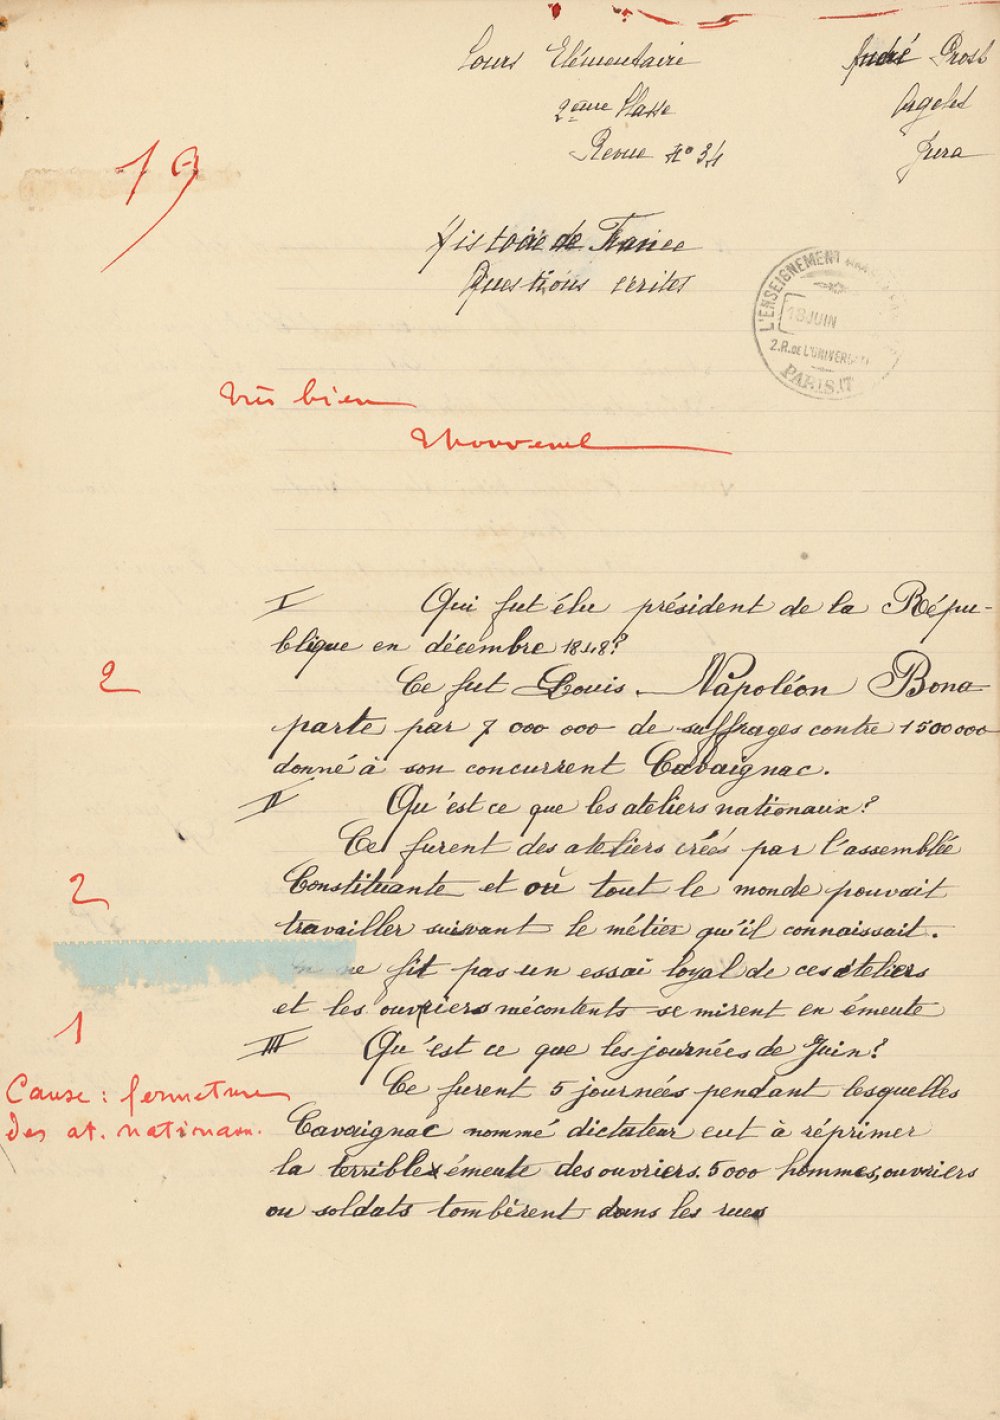 Cours Elémentaire
2ème Classe
Revue N° 34
André Prost
Jura
19
Histoire de France
Questions écrites
L'ENSEIGNEMENT
18 JUIN
2.R. DE L'UNIVERSITE
PARIS.
Très bien
I Qui fut élu président de la Répu-
blique en décembre 1848?
Ce fut Louis-Napoléon Bona
parte par 7 000 000 de suffrages contre 1500000
donné à son concurrent Cavaignac.
2
II Qu'est ce que les ateliers nationaux?
Ce furent des ateliers créés par l'assemblée
Constituante et où tout le monde pouvait
travailler suivant le métier qu'il connaissait.
2
ne fit pas un essai loyal de ces ateliers
et les ouvriers mécontents se mirent en émeute
III Qu'est ce que les journées de Juin?
1
Ce furent 5 journées pendant lesquelles
Cavaignac nommé dictateur eut à réprimer
la terrible émeute des ouvriers. 5000 hommes, ouvriers
ou soldats tombèrent dans les rues
Cause : fermeture
des at. nationaux.